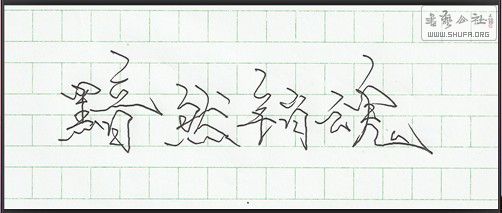 書法公社
WWW.SHUFA.ORG
黯然销魂